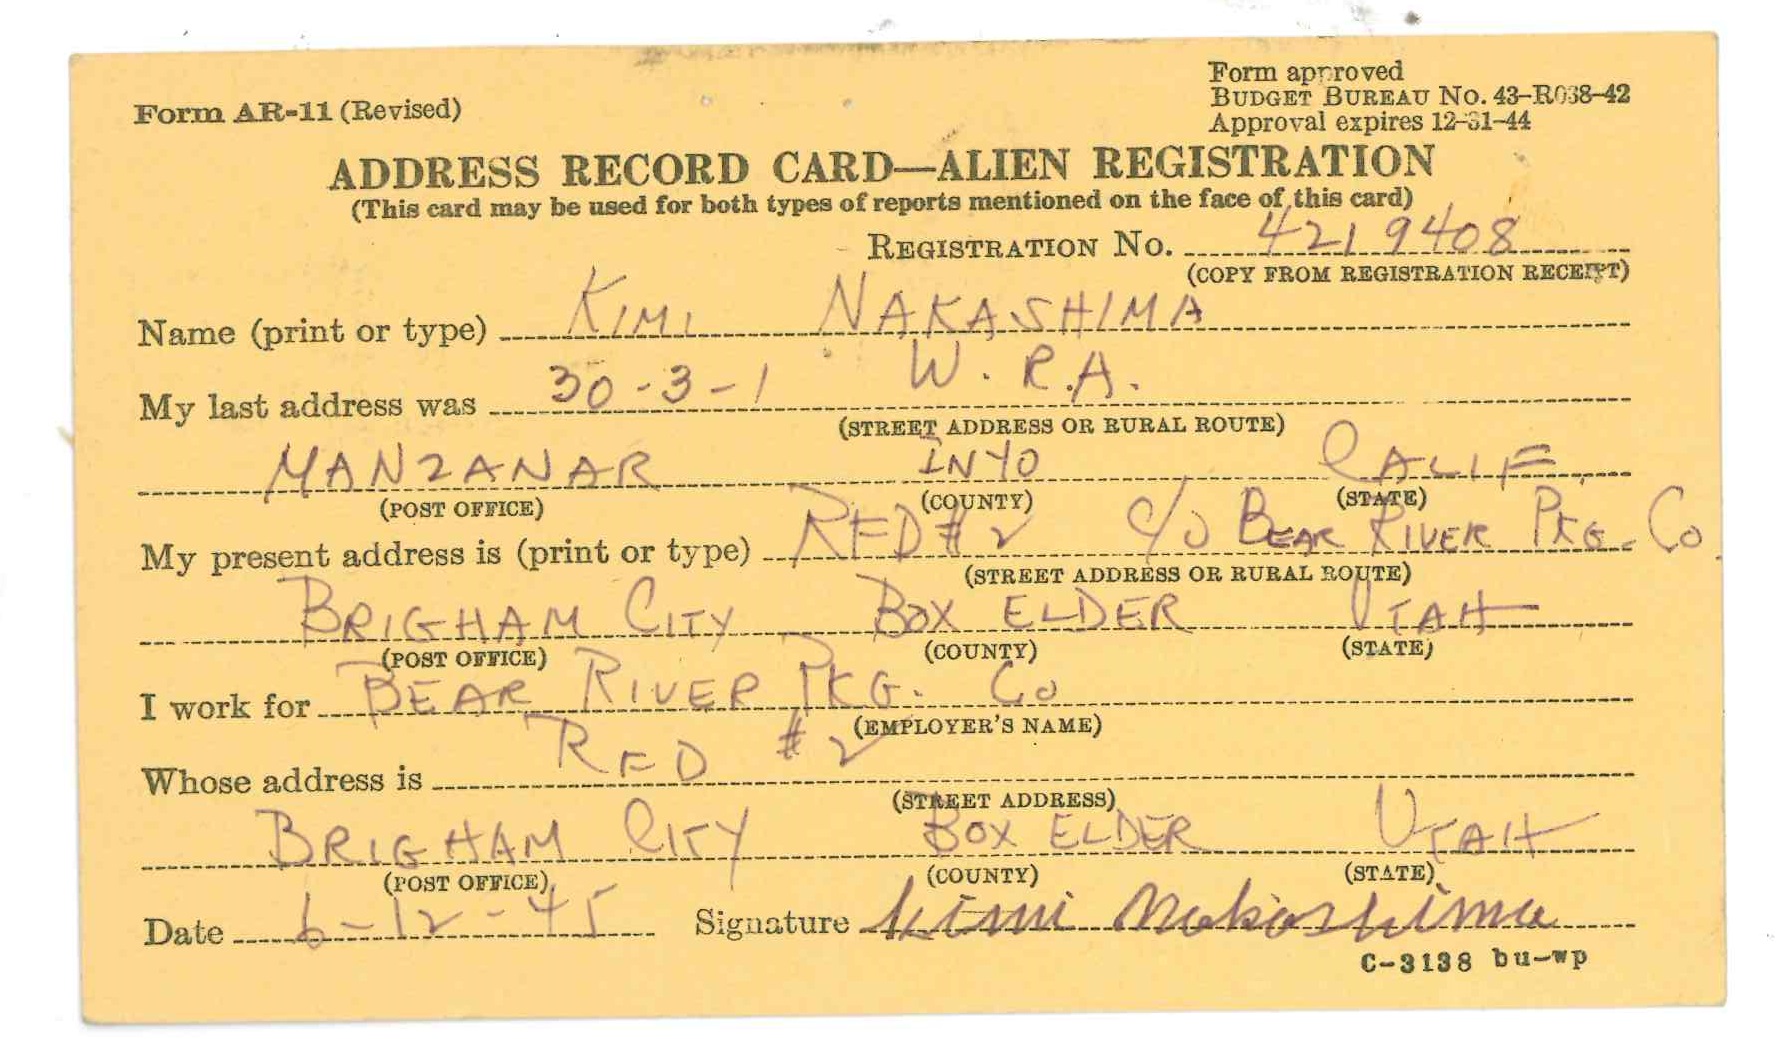 Form AR-11 (Revised)
Form approved
BUDGET BUREAU No. 43-R038-42
Approval expires 12-31-44
ADDRESS RECORD CARD—ALIEN REGISTRATION
(This card may be used for both types of reports mentioned on the face of this card)
REGISTRATION No. 4219408
(COPY FROM REGISTRATION RECEIPT)
Name (print or type) KIMI NAKASHIMA
My last address was 30-3-1 W. R.A.
(STREET ADDRESS OR RURAL ROUTE)
MANZANAR INYO CALIF.
(POST OFFICE) (COUNTY) (STATE)
My present address is (print or type) RFD #2 c/o BEAR RIVER PKG. Co.
(STREET ADDRESS OR RURAL ROUTE)
BRIGHAM CITY BOX ELDER UTAH
(POST OFFICE) (COUNTY) (STATE)
I work for BEAR RIVER PKG. Co
(EMPLOYER'S NAME)
Whose address is RFD #2
(STREET ADDRESS)
BRIGHAM CITY BOX ELDER UTAH
(POST OFFICE) (COUNTY) (STATE)
Date 6-12-45 Signature Kimi Nakashima
C-3138 bu-wp